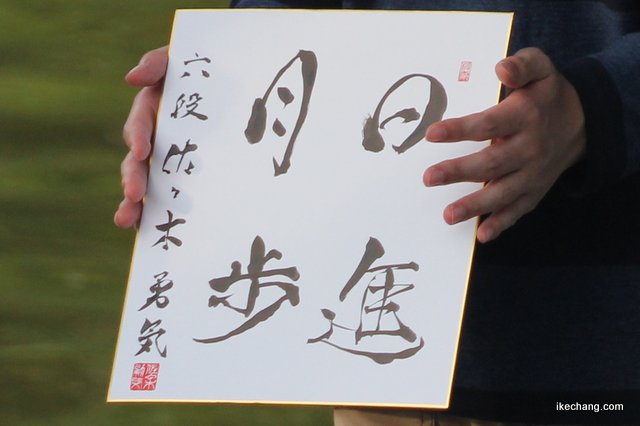 日進
月歩
六段 佐々木勇気
ikechang.com